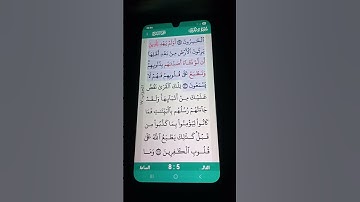 ٱلْخَٰسِرُونَ ۝ أَوَلَمْ يَهْدِ لِلَّذِينَ
يَرِثُونَ ٱلْأَرْضَ مِنۢ بَعْدِ أَهْلِهَآ
أَن لَّوْ نَشَآءُ أَصَبْنَٰهُم بِذُنُوبِهِمْ
وَنَطْبَعُ عَلَىٰ قُلُوبِهِمْ فَهُمْ لَا
يَسْمَعُونَ ۝ تِلْكَ ٱلْقُرَىٰ نَقُصُّ
عَلَيْكَ مِنْ أَنۢبَآئِهَا وَلَقَدْ
جَآءَتْهُمْ رُسُلُهُم بِٱلْبَيِّنَٰتِ فَمَا
كَانُوا۟ لِيُؤْمِنُوا۟ بِمَا كَذَّبُوا۟ مِن
قَبْلُ كَذَٰلِكَ يَطْبَعُ ٱللَّهُ عَلَىٰ
قُلُوبِ ٱلْكَٰفِرِينَ ۝ وَمَا
8:5